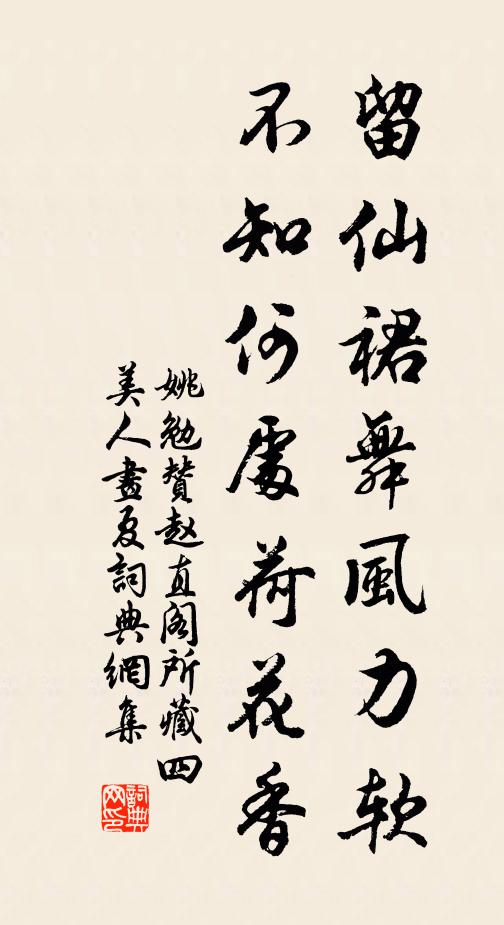 留仙裙舞風力軟
不知何處荷花香
姚勉贊赵直阁所藏四
美人畫夏詞典網集
詞典网印